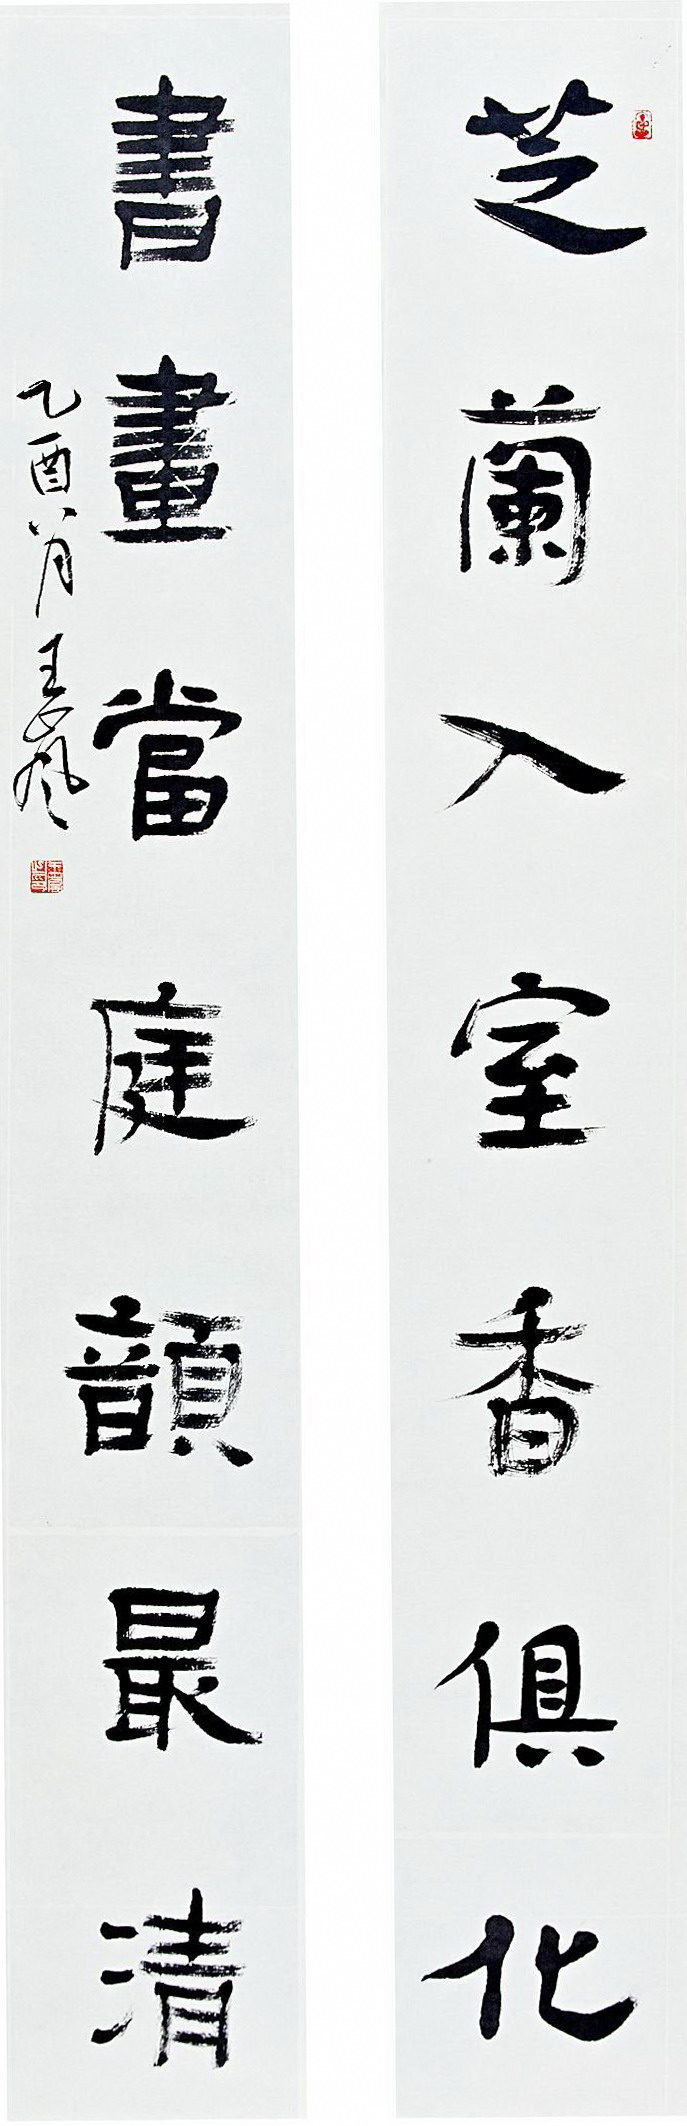 芝蘭入室香俱化
書畫當庭韻最清
乙酉八月王